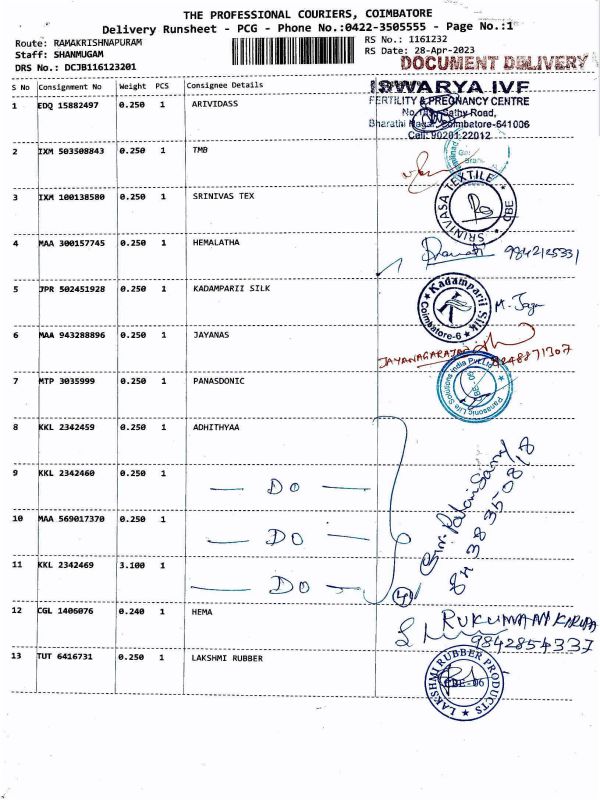 THE PROFESSIONAL COURIERS, COIMBATORE
Delivery Runsheet - PCG - Phone No.:0422-3505555 - Page No.:1
Route: RAMAKRISHNAPURAM
RS No.: 1161232
Staff: SHANMUGAM
RS Date: 28-Apr-2023
DRS No.: DCJB116123201
DOCUMENT DELIVERY
S No Consignment No Weight PCS Consignee Details
ISWARYA IVF
1 EDQ 15882497 0.250 1 ARIVIDASS
FERTILITY & PREGNANCY CENTRE
Sathy Road,
Coimbatore-641006
Cell: 90201 22012
2 IXM 503508843 0.250 1 TMB
3 IXM 100138580 0.250 1 SRINIVAS TEX
SRINIVASA TEXTILE CBE
4 MAA 300157745 0.250 1 HEMALATHA
9842125331
5 JPR 502451928 0.250 1 KADAMPARII SILK
Kadamparii Silk Coimbatore-6
6 MAA 943288896 0.250 1 JAYANAS
JAYANAGARAJAN
7 MTP 3035999 0.250 1 PANASDONIC
Panasonic Life Solutions India Pvt Ltd
8 KKL 2342459 0.250 1 ADHITHYAA
9 KKL 2342460 0.250 1 — DO —
10 MAA 569017370 0.250 1 — DO —
11 KKL 2342469 3.100 1 — DO —
4
12 CGL 1406076 0.240 1 HEMA
9842854337
13 TUT 6416731 0.250 1 LAKSHMI RUBBER
LAKSHMI RUBBER PRODUCTS
CBE-06